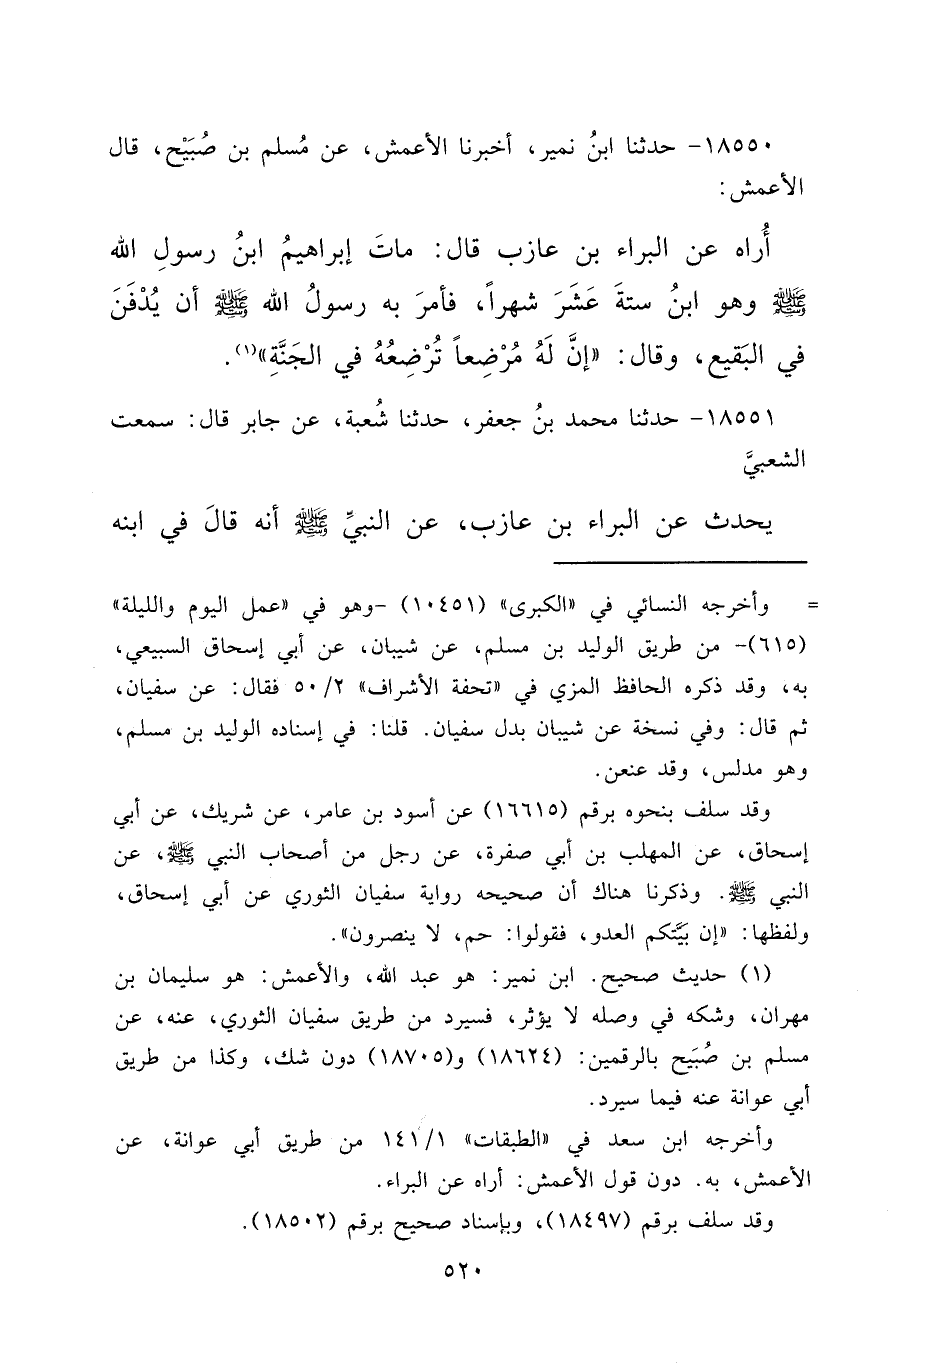 ١٨٥٥٠- حدثنا ابنُ نمير، أخبرنا الأعمش، عن مُسلم بن صُبَيْح، قال
الأعمش:
أُراه عن البراء بن عازب قال: ماتَ إبراهيمُ ابنُ رسولِ الله
ﷺ وهو ابنُ ستةَ عَشَرَ شهراً، فأمرَ به رسولُ الله ﷺ أن يُدْفَنَ
في البَقيع، وقال: «إنَّ لَهُ مُرْضِعاً تُرْضِعُهُ في الجَنَّةِ»(١).
١٨٥٥١- حدثنا محمد بنُ جعفر، حدثنا شُعبة، عن جابر قال: سمعت
الشعبيَّ
يحدث عن البراء بن عازب، عن النبيِّ ﷺ أنه قالَ في ابنه
= وأخرجه النسائي في «الكبرى» (١٠٤٥١) -وهو في «عمل اليوم والليلة»
(٦١٥)- من طريق الوليد بن مسلم، عن شيبان، عن أبي إسحاق السبيعي،
به، وقد ذكره الحافظ المزي في «تحفة الأشراف» ٥٠/٢ فقال: عن سفيان،
ثم قال: وفي نسخة عن شيبان بدل سفيان. قلنا: في إسناده الوليد بن مسلم،
وهو مدلس، وقد عنعن.
وقد سلف بنحوه برقم (١٦٦١٥) عن أسود بن عامر، عن شريك، عن أبي
إسحاق، عن المهلب بن أبي صفرة، عن رجل من أصحاب النبي ﷺ، عن
النبي ﷺ. وذكرنا هناك أن صحيحه رواية سفيان الثوري عن أبي إسحاق،
ولفظها: «إن بَيَّتكم العدو، فقولوا: حم، لا ينصرون».
(١) حديث صحيح. ابن نمير: هو عبد الله، والأعمش: هو سليمان بن
مهران، وشكه في وصله لا يؤثر، فسيرد من طريق سفيان الثوري، عنه، عن
مسلم بن صُبَيح بالرقمين: (١٨٦٢٤) و(١٨٧٠٥) دون شك، وكذا من طريق
أبي عوانة عنه فيما سيرد.
وأخرجه ابن سعد في «الطبقات» ١٤١/١ من طريق أبي عوانة، عن
الأعمش، به. دون قول الأعمش: أراه عن البراء.
وقد سلف برقم (١٨٤٩٧)، وبإسناد صحيح برقم (١٨٥٠٢).
٥٢٠